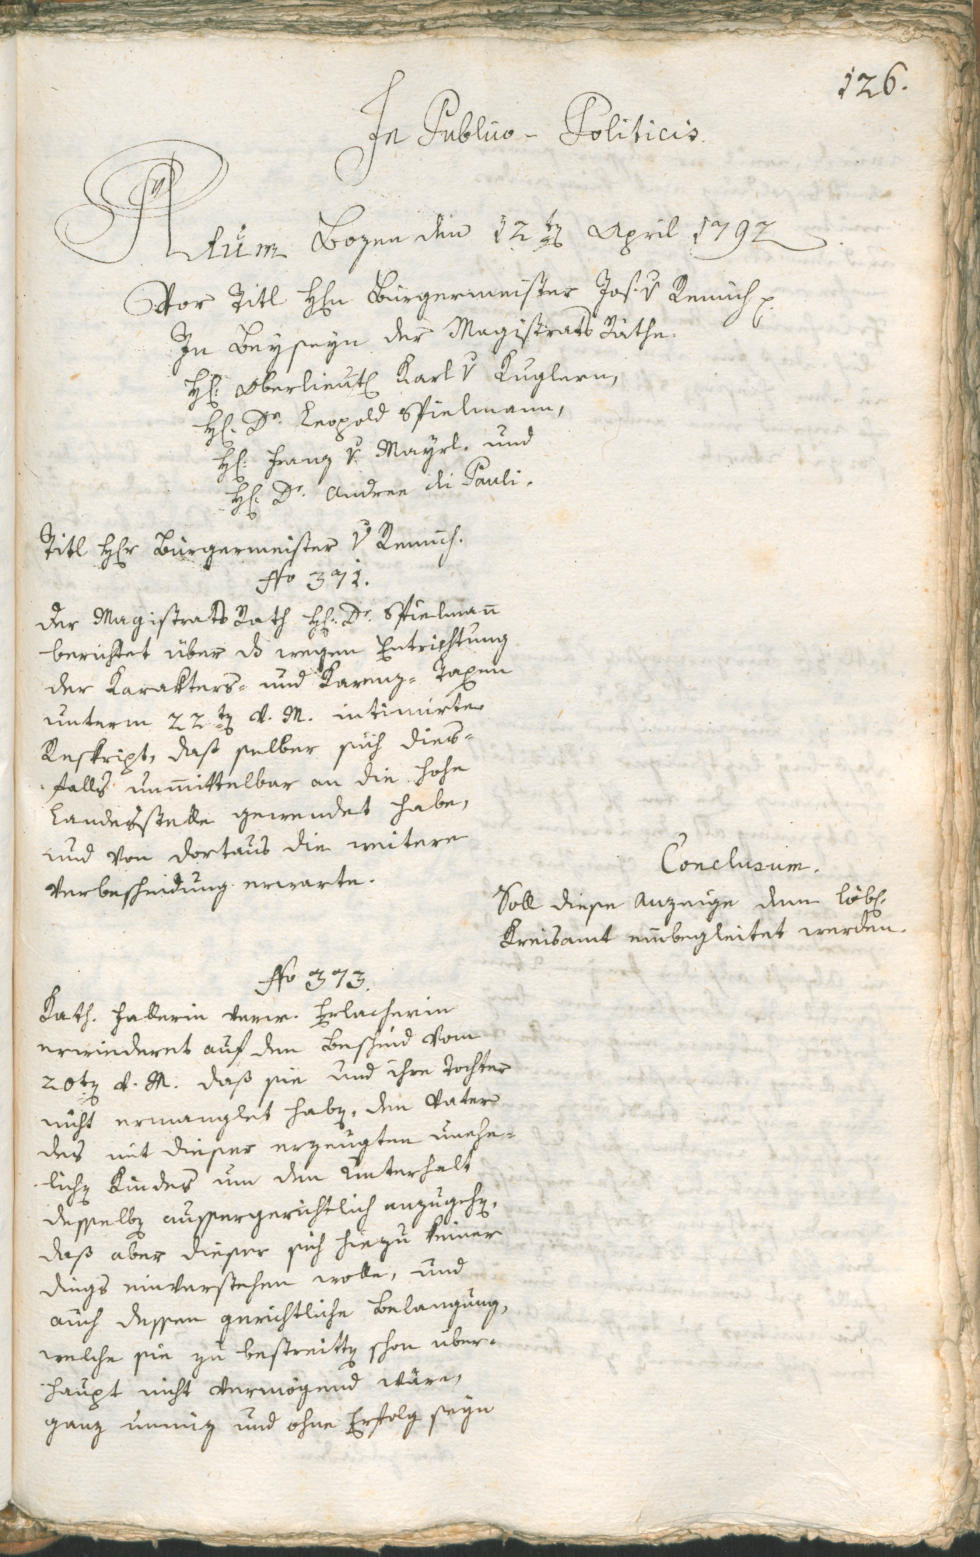 126.
In Publico-Politicis.
Actum Bozen den 12ten April 1792
Vor Titl Hhn Bürgermeister Jos. v Remich p.
In Beyseyn der Magistrats Räthe.
Hh. Oberlieut. Karl v Kuglern,
Hh. Dr. Leopold Spielmann,
Hh. Franz v. Mayrl. und
Hh. Dr. Andree di Pauli.
Titl Hhr Bürgermeister v Remich.
No 371.
Der Magistrats Rath Hh. Dr. Spielmann̅
berichtet über das wegen Entrichtung
der Karakters- und Karenz-Taxen
unterm 22ten v. M. intimirte
Reskript, daß selber sich dies-
falls unmittelbar an die hohe
Landesstelle gewendet habe,
und von dortaus die weitere
Verbescheidung erwarte.
Conclusum.
Soll diese Anzeige dem löbl.
Kreisamt einbegleitet werden.
No 373.
Kath. Hallerin verw. Erlacherin
erwiederet auf den Bescheid vom
20ten v. M. daß sie und ihre Tochter
nicht ermanglet haben, den Vater
des mit dieser erzeugten unehe-
lichen Kindes um den Unterhalt
desselben aussergerichtlich anzugehen,
daß aber dieser sich hiezu keiner
dings einverstehen wolle, und
auch dessen gerichtliche Belangung,
welche sie zu bestreitten schon über-
haupt nicht vermögend wäre,
ganz unnüz und ohne Erfolg seyn